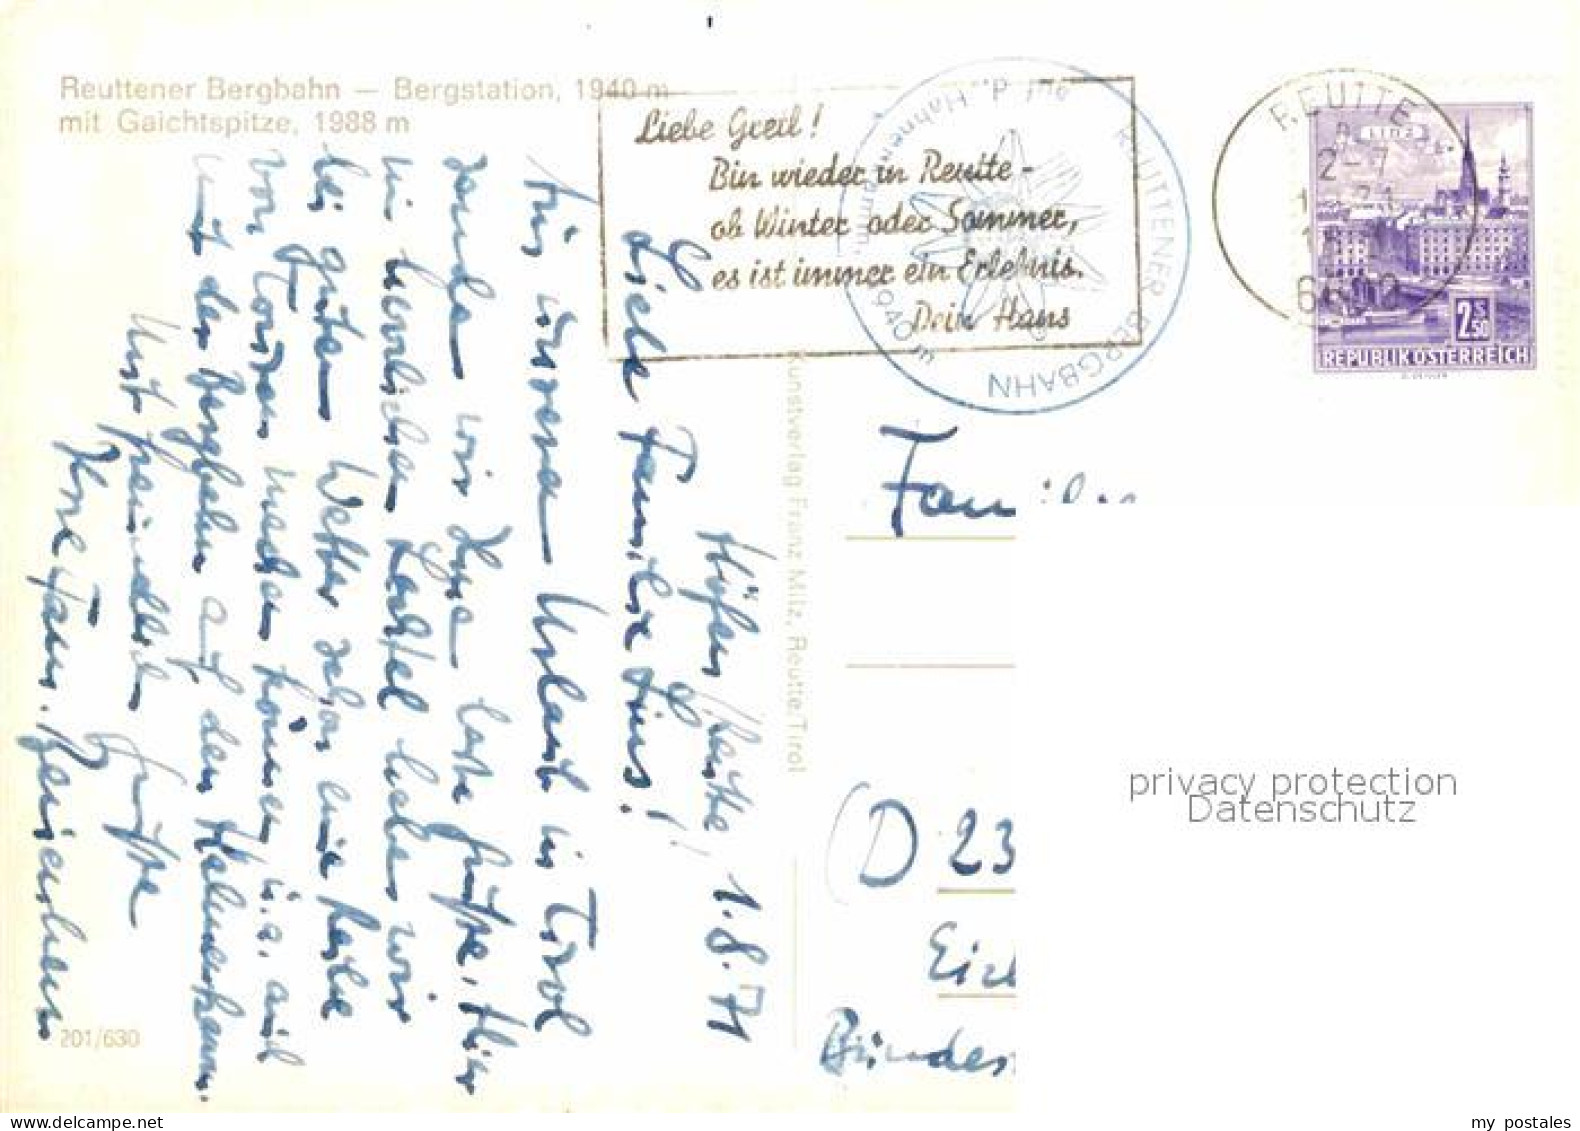 Reuttener Bergbahn — Bergstation, 1940 m
mit Gaichtspitze, 1988 m
Liebe Gretl!
Bin wieder in Reutte -
ob Winter oder Sommer,
es ist immer ein Erlebnis.
Dein Hans
REUTTENER BERGBAHN
1940 m
REUTTE
2-7
LINZ
2 S. 50
REPUBLIK ÖSTERREICH
Kunstverlag Franz Milz, Reutte/Tirol
Höfen/Reutte, 1.8.71
Liebe Familie
Aus unserem Urlaub in Tirol
senden wir Ihnen liebe Grüße. Hier
im herrlichen Lechtal haben wir
bei gutem Wetter schon eine Reihe
von Touren machen können, u.a. auch
mit der Bergbahn auf den Hahnenkamm.
Mit freundlichen Grüßen
Ihre Fam.
Fam
(D 23
Bündes
201/630
privacy protection
Datenschutz
my postales